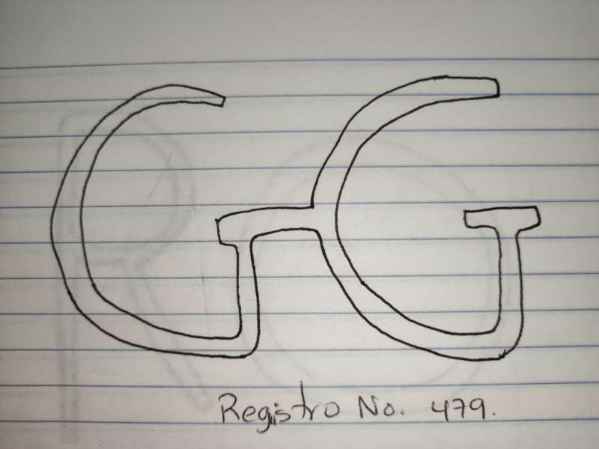 GG
Registro No. 479.